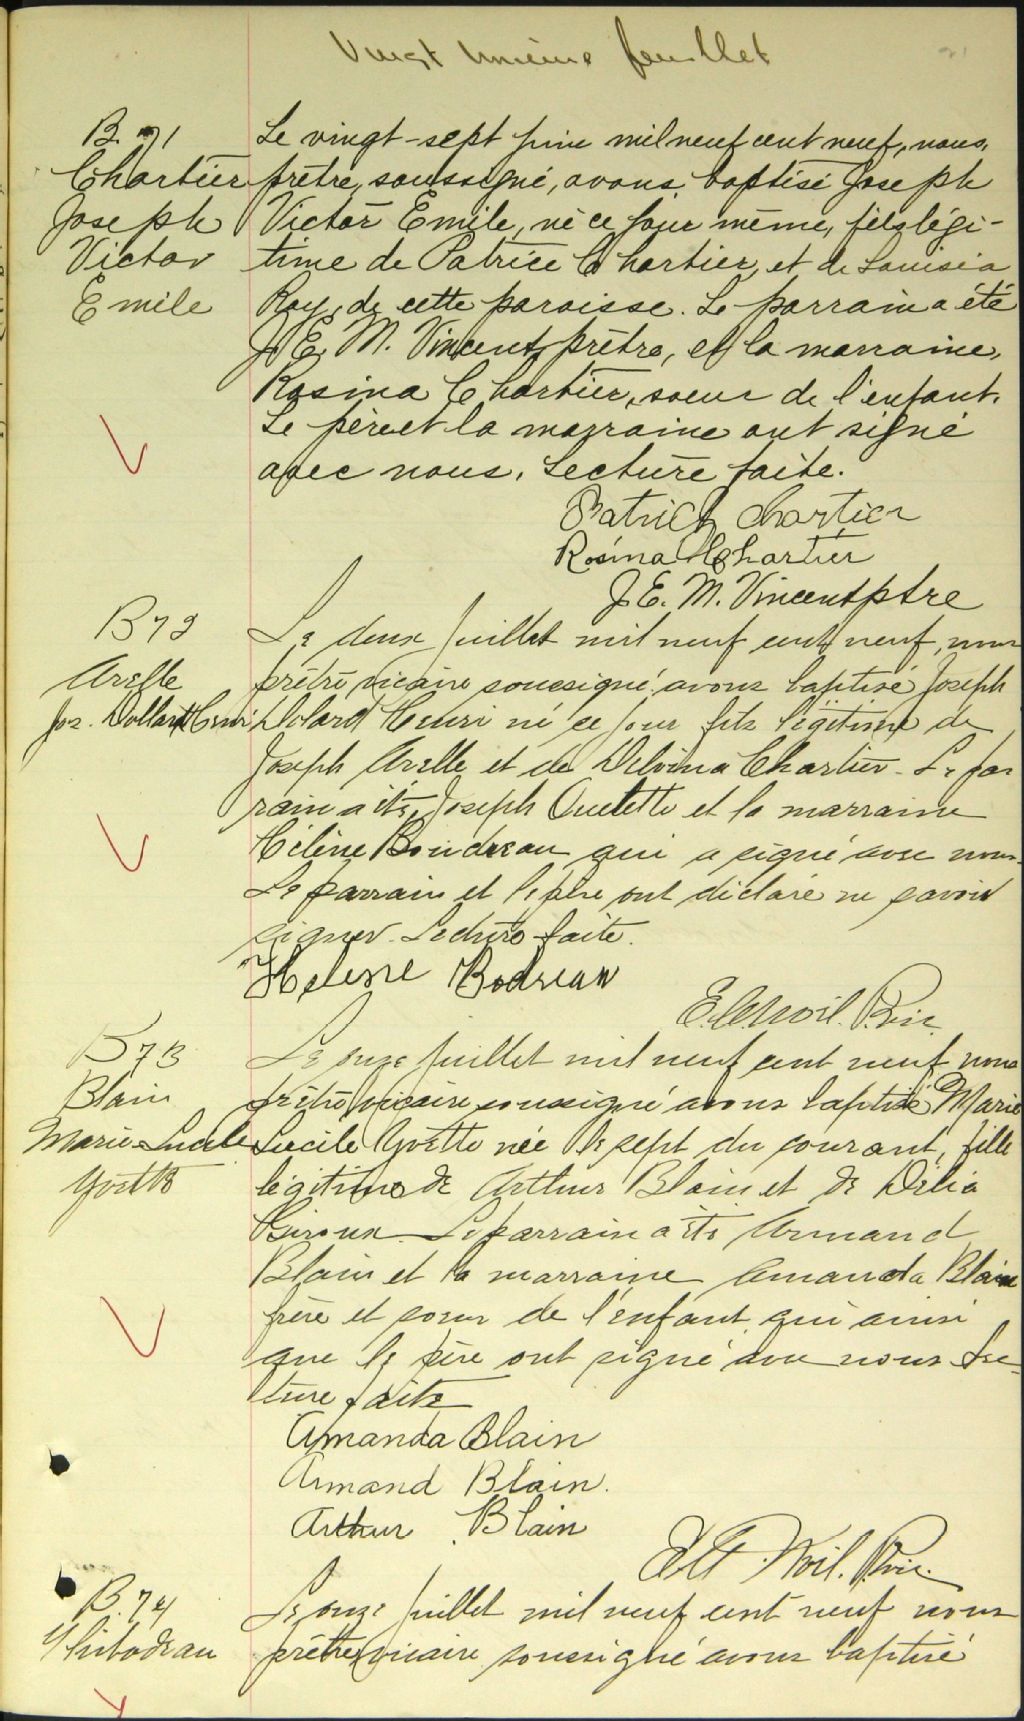 Vingt unième feuillet
21
B. 71
Chartier
Joseph
Victor
Emile
Le vingt-sept juin mil neuf cent neuf, nous,
prêtre, soussigné, avons baptisé Joseph
Victor Emile, né ce jour même, fils légi-
time de Patrice Chartier, et de Louisia
Roy, de cette paroisse. Le parrain a été
J. E. M. Vincent, prêtre, et la marraine,
Rosina Chartier, soeur de l'enfant.
Le père et la marraine ont signé
avec nous. Lecture faite.
Patrick Chartier
Rosina Chartier
J. E. M. Vincent ptre
B 72
Arelle
Jos. Dollard Henri
Le deux juillet mil neuf cent neuf, nous
prêtre vicaire soussigné avons baptisé Joseph
Dolard Henri né ce jour fils légitime de
Joseph Arelle et de Delvina Chartier. Le par
rain a été Joseph Ouelette et la marraine
Hélène Boudreau qui a signé avec nous.
Le parrain et le père ont déclaré ne savoir
signer. Lecture faite.
Helene Bodreau
Ptre. vic.
B 73
Blain
Marie Lucile
Yvette
Le onze juillet mil neuf cent neuf nous
prêtre vicaire soussigné avons baptisé Marie
Lucile Yvette née le sept du courant, fille
légitime de Arthur Blain et de Délia
Giroux. Le parrain a été Armand
Blain et la marraine Amanda Blain
frère et soeur de l'enfant qui ainsi
que le père ont signé avec nous. Lec-
ture faite
Amanda Blain
Armand Blain.
Arthur Blain
Ptre. vic.
B. 74
Thibodeau
Le onze juillet mil neuf cent neuf nous
prêtre vicaire soussigné avons baptisé